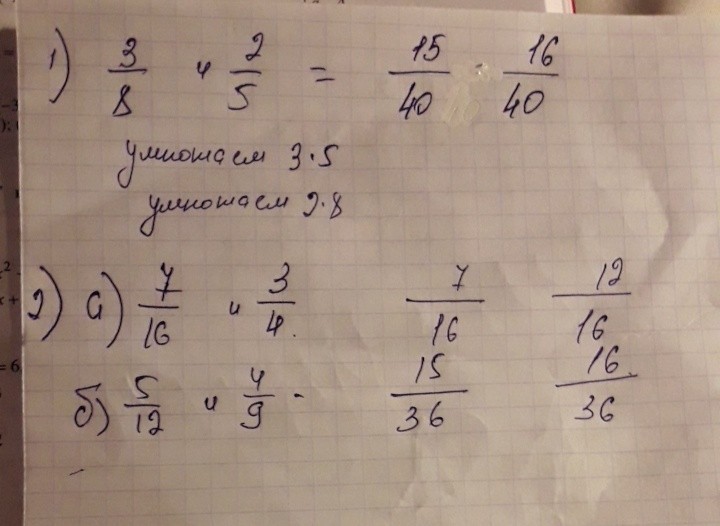 1) 3/8 и 2/5 = 15/40 16/40
умножаем 3·5
умножаем 2·8
2) а) 7/16 и 3/4 7/16 12/16
б) 5/12 и 4/9 15/36 16/36